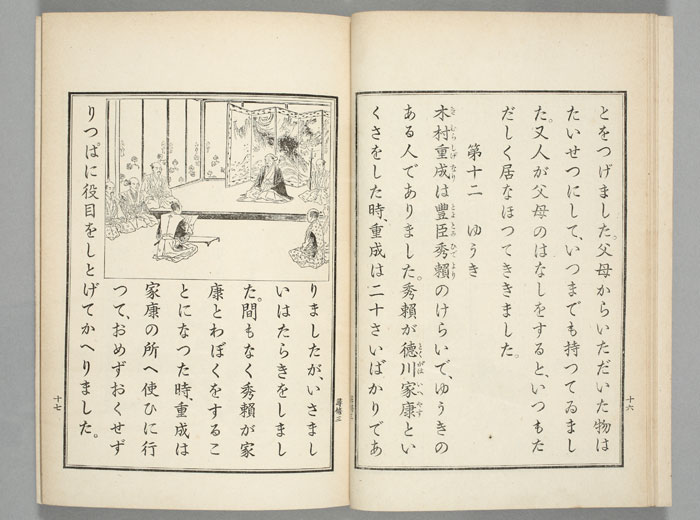 とをつげました。父母からいただいた物は
たいせつにして、いつまでも持つてゐまし
た。又人が父母のはなしをすると、いつもた
だしく居なほつてききました。
第十二 ゆうき
木村重成は豐臣秀賴のけらいで、ゆうきの
ある人でありました。秀賴が徳川家康とい
くさをした時、重成は二十さいばかりであ
十六
りましたが、いさまし
いはたらきをしまし
た。間もなく秀賴が家
康とわぼくをするこ
とになつた時、重成は
家康の所へ使ひに行
つて、おめずおくせず
りつぱに役目をしとげてかへりました。
十七